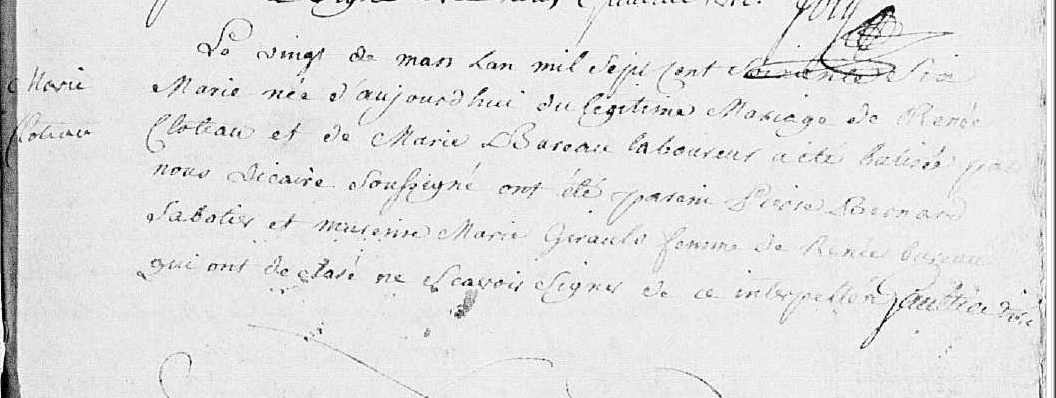 Le vingt de mars Lan mil Sept Cent Soixante Six
Marie
Marie née d'aujourdhui du légitime Mariage de Renée
Cloteau
Cloteau et de Marie Bureau laboureur a été batisée par
nous Vicaire Soussigné ont été parein Pierre Besnard
Sabotier et mareine Marie Girault femme de Renée bureau
qui ont declaré ne Scavoir Signer de ce interpellés Gautier vic